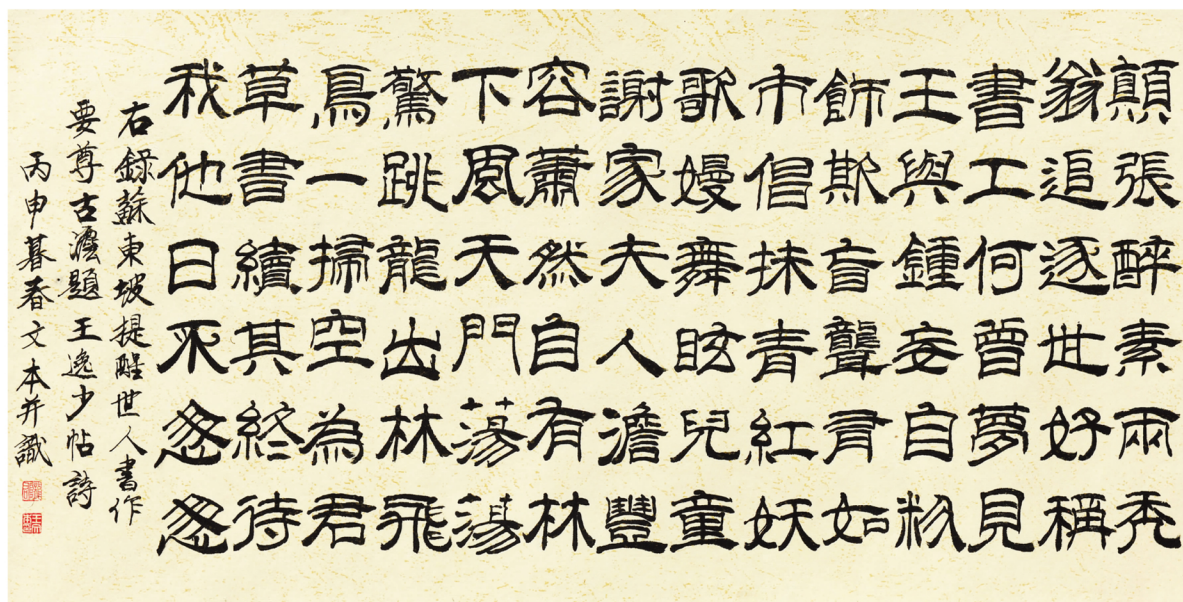 顛張醉素兩禿
翁追逐世好稱
書工何曾夢見
王與鍾妄自粉
飾欺盲聾有如
市倡抹青紅妖
歌嫚舞眩兒童
謝家夫人澹豐
容蕭然自有林
下風天門蕩蕩
驚跳龍出林飛
鳥一掃空為君
草書續其終待
我他日不悤悤
右錄蘇東坡提醒世人書作
要尊古灋題王逸少帖詩
丙申暮春文本并識